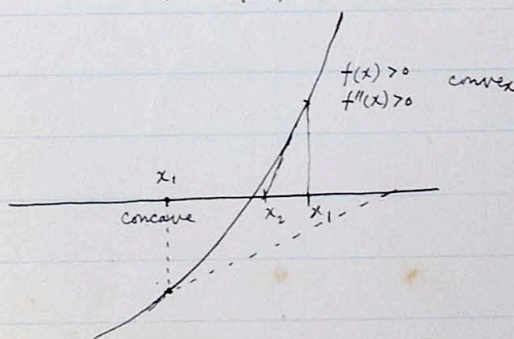 f(x) > 0 convex
f"(x) > 0
x₁
concave
x₂ x₁